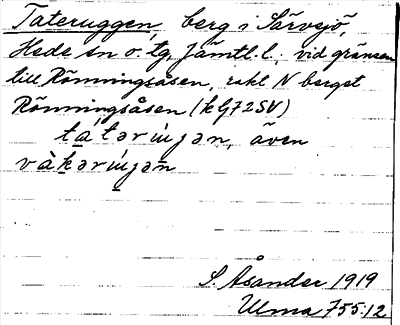 Tateruggen, berg i Särvsjö,
Hede sn o. tg. Jämtl. l. vid gränsen
till Rönningsåsen, rakt N berget
Rönningsåsen (k G72SV)
även
S. Åsander 1919
Ulma 755:12